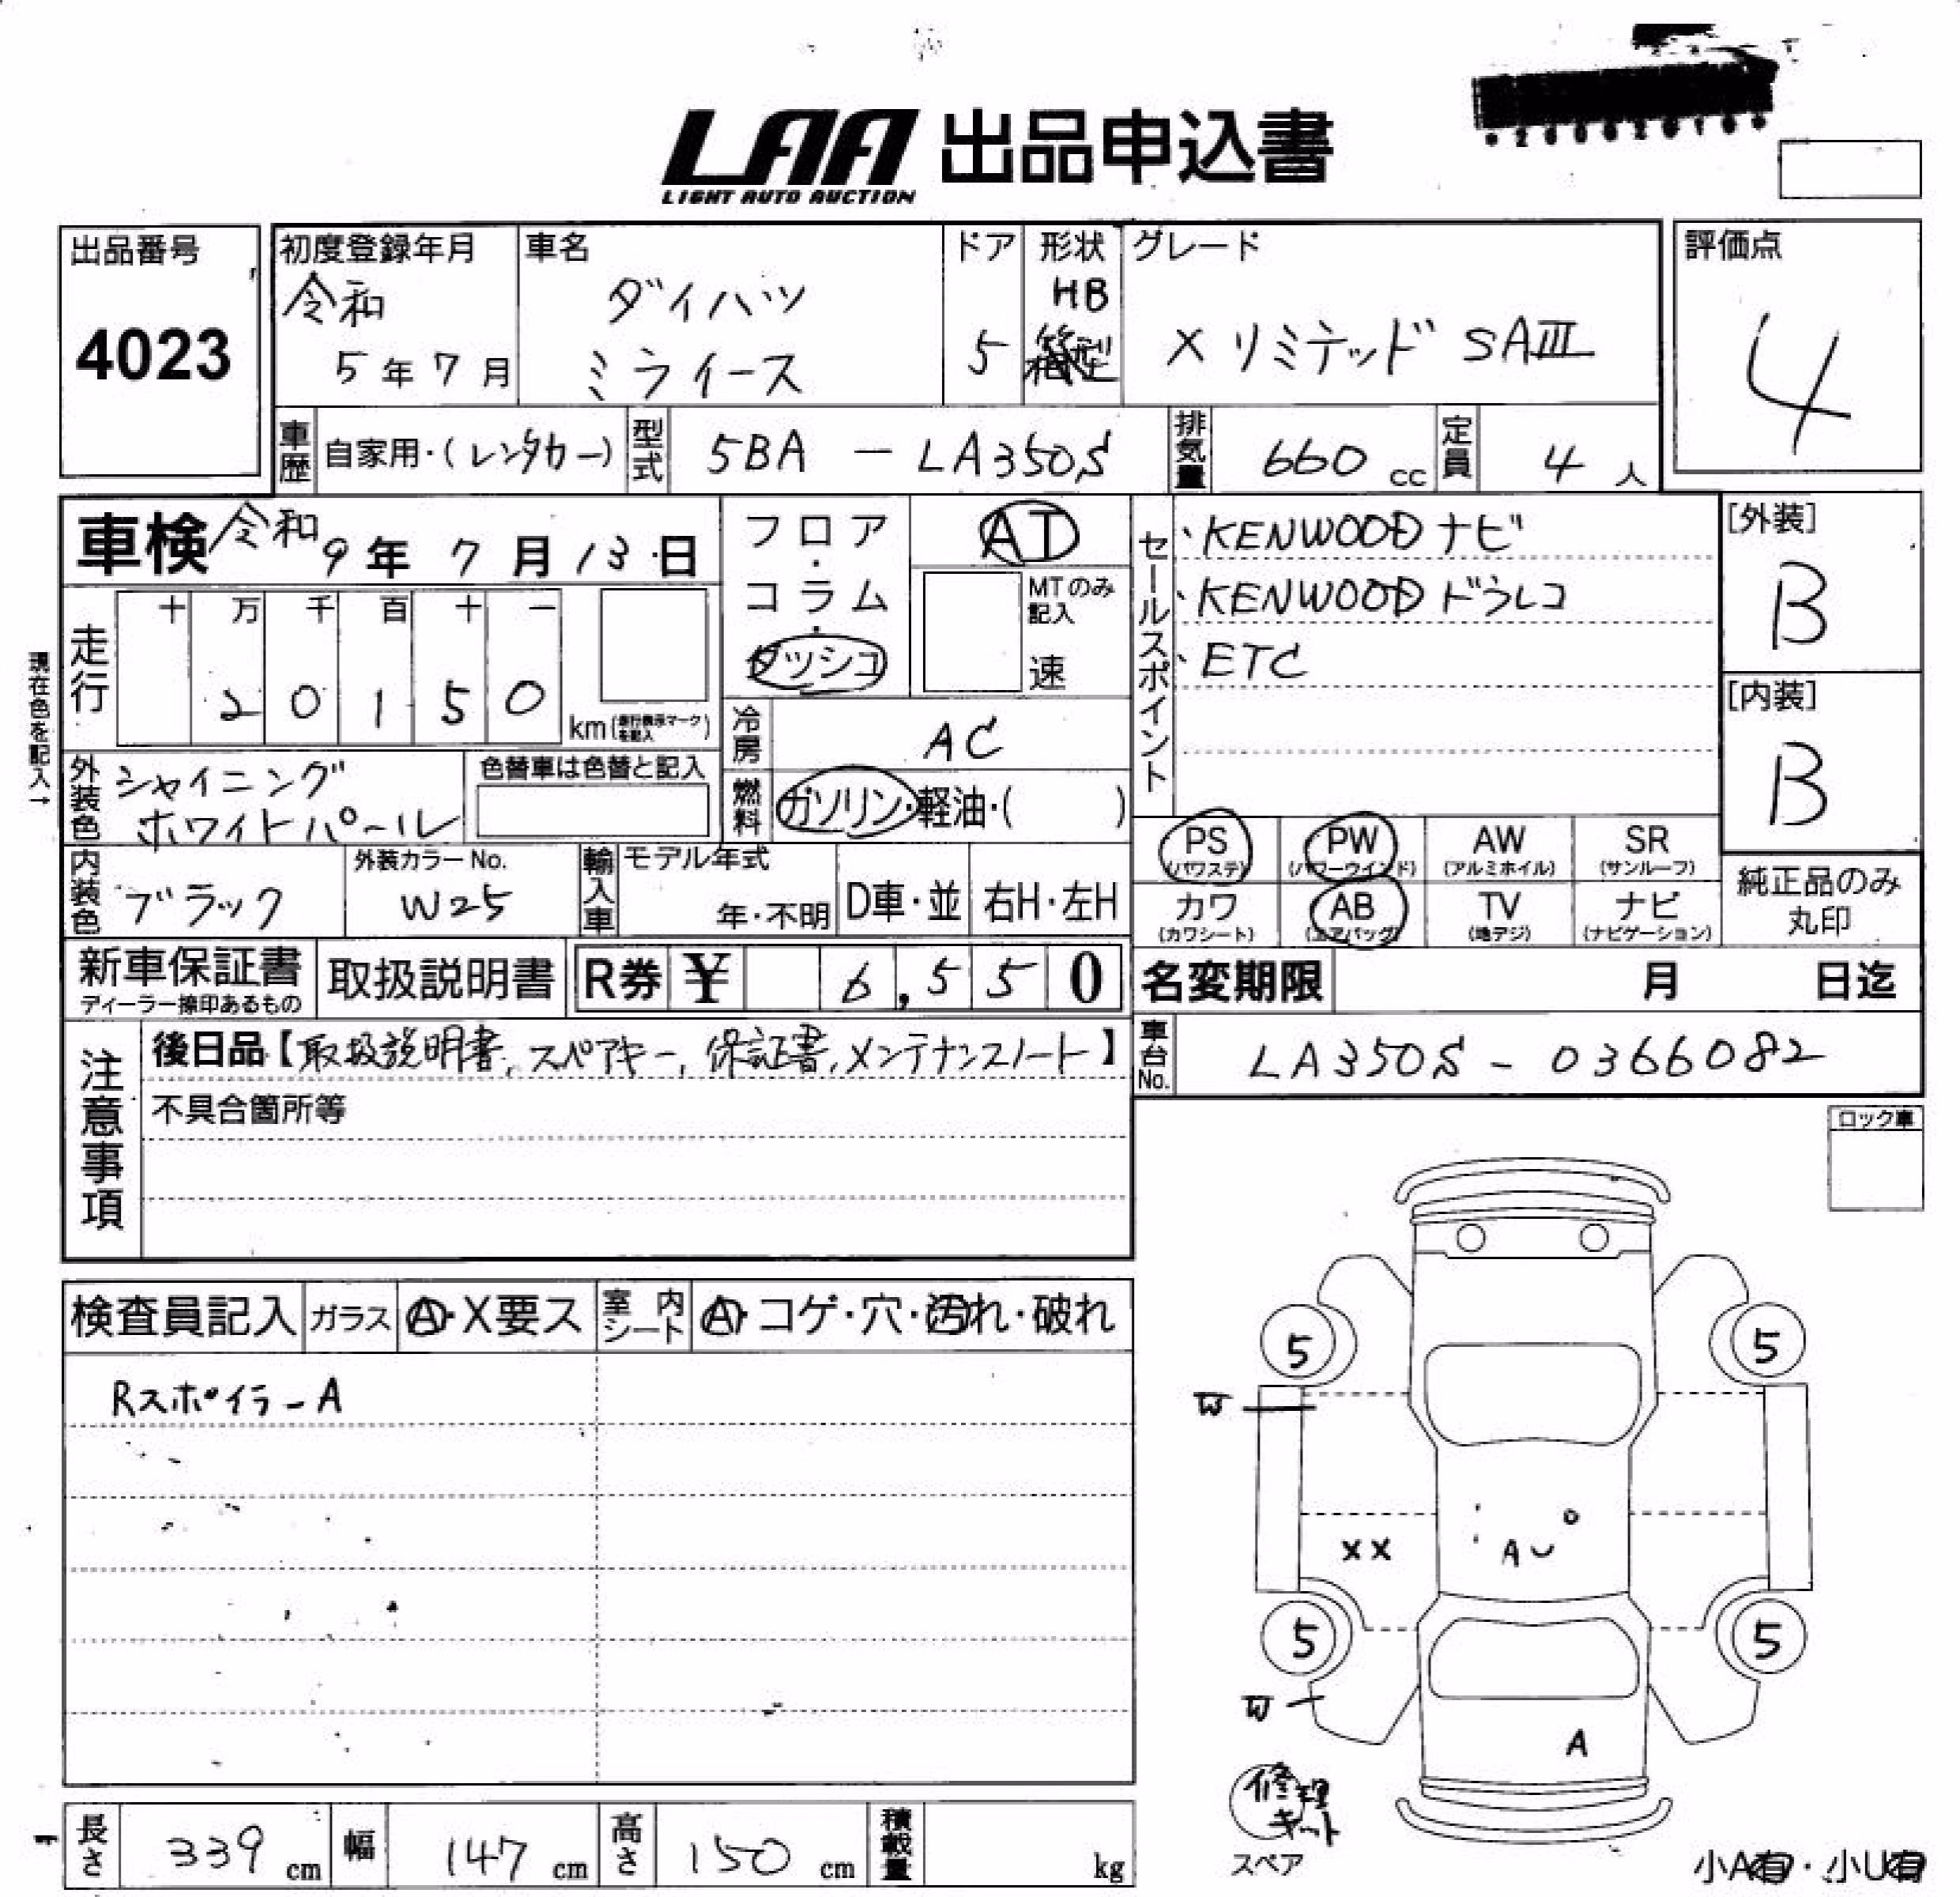 LAA 出品申込書
LIGHT AUTO AUCTION
出品番号
4023
初度登録年月
令和
5年7月
車名
ダイハツ
ミライース
ドア
5
形状
HB
箱型
グレード
X リミテッド SAⅢ
評価点
4
車歴
自家用・(レンタカー)
型式
5BA - LA350S
排気量
660 cc
定員
4人
車検 令和9年7月13日
フロア・コラム・ダッシュ
AT
MTのみ記入
速
セールスポイント
・KENWOOD ナビ
・KENWOOD ドラレコ
・ETC
[外装]
B
[内装]
B
現在色を記入→
走行
十 万 千 百 十 一
2 0 1 5 0
km(走行表示マークを記入)
冷房
AC
燃料
ガソリン・軽油・( )
外装色
シャイニング
ホワイトパール
色替車は色替と記入
内装色
ブラック
外装カラーNo.
W25
輸入車
モデル年式
年・不明
D車・並
右H・左H
PS
(パワステ)
PW
(パワーウインド)
AW
(アルミホイル)
SR
(サンルーフ)
カワ
(カワシート)
AB
(エアバッグ)
TV
(地デジ)
ナビ
(ナビゲーション)
純正品のみ
丸印
新車保証書
ディーラー捺印あるもの
取扱説明書
R券 ¥ 6,550
名変期限 月 日迄
車台No.
LA350S - 0366082
注意事項
後日品【取扱説明書、スペアキー、保証書、メンテナンスノート】
不具合箇所等
ロック車
検査員記入
ガラス
A・X要ス
室内シート
A・コゲ・穴・汚れ・破れ
Rスポイラー A
5
5
W
XX
A U
5
5
W
A
修理
キット
スペア
小A有・小U有
長さ
339 cm
幅
147 cm
高さ
150 cm
積載量
kg